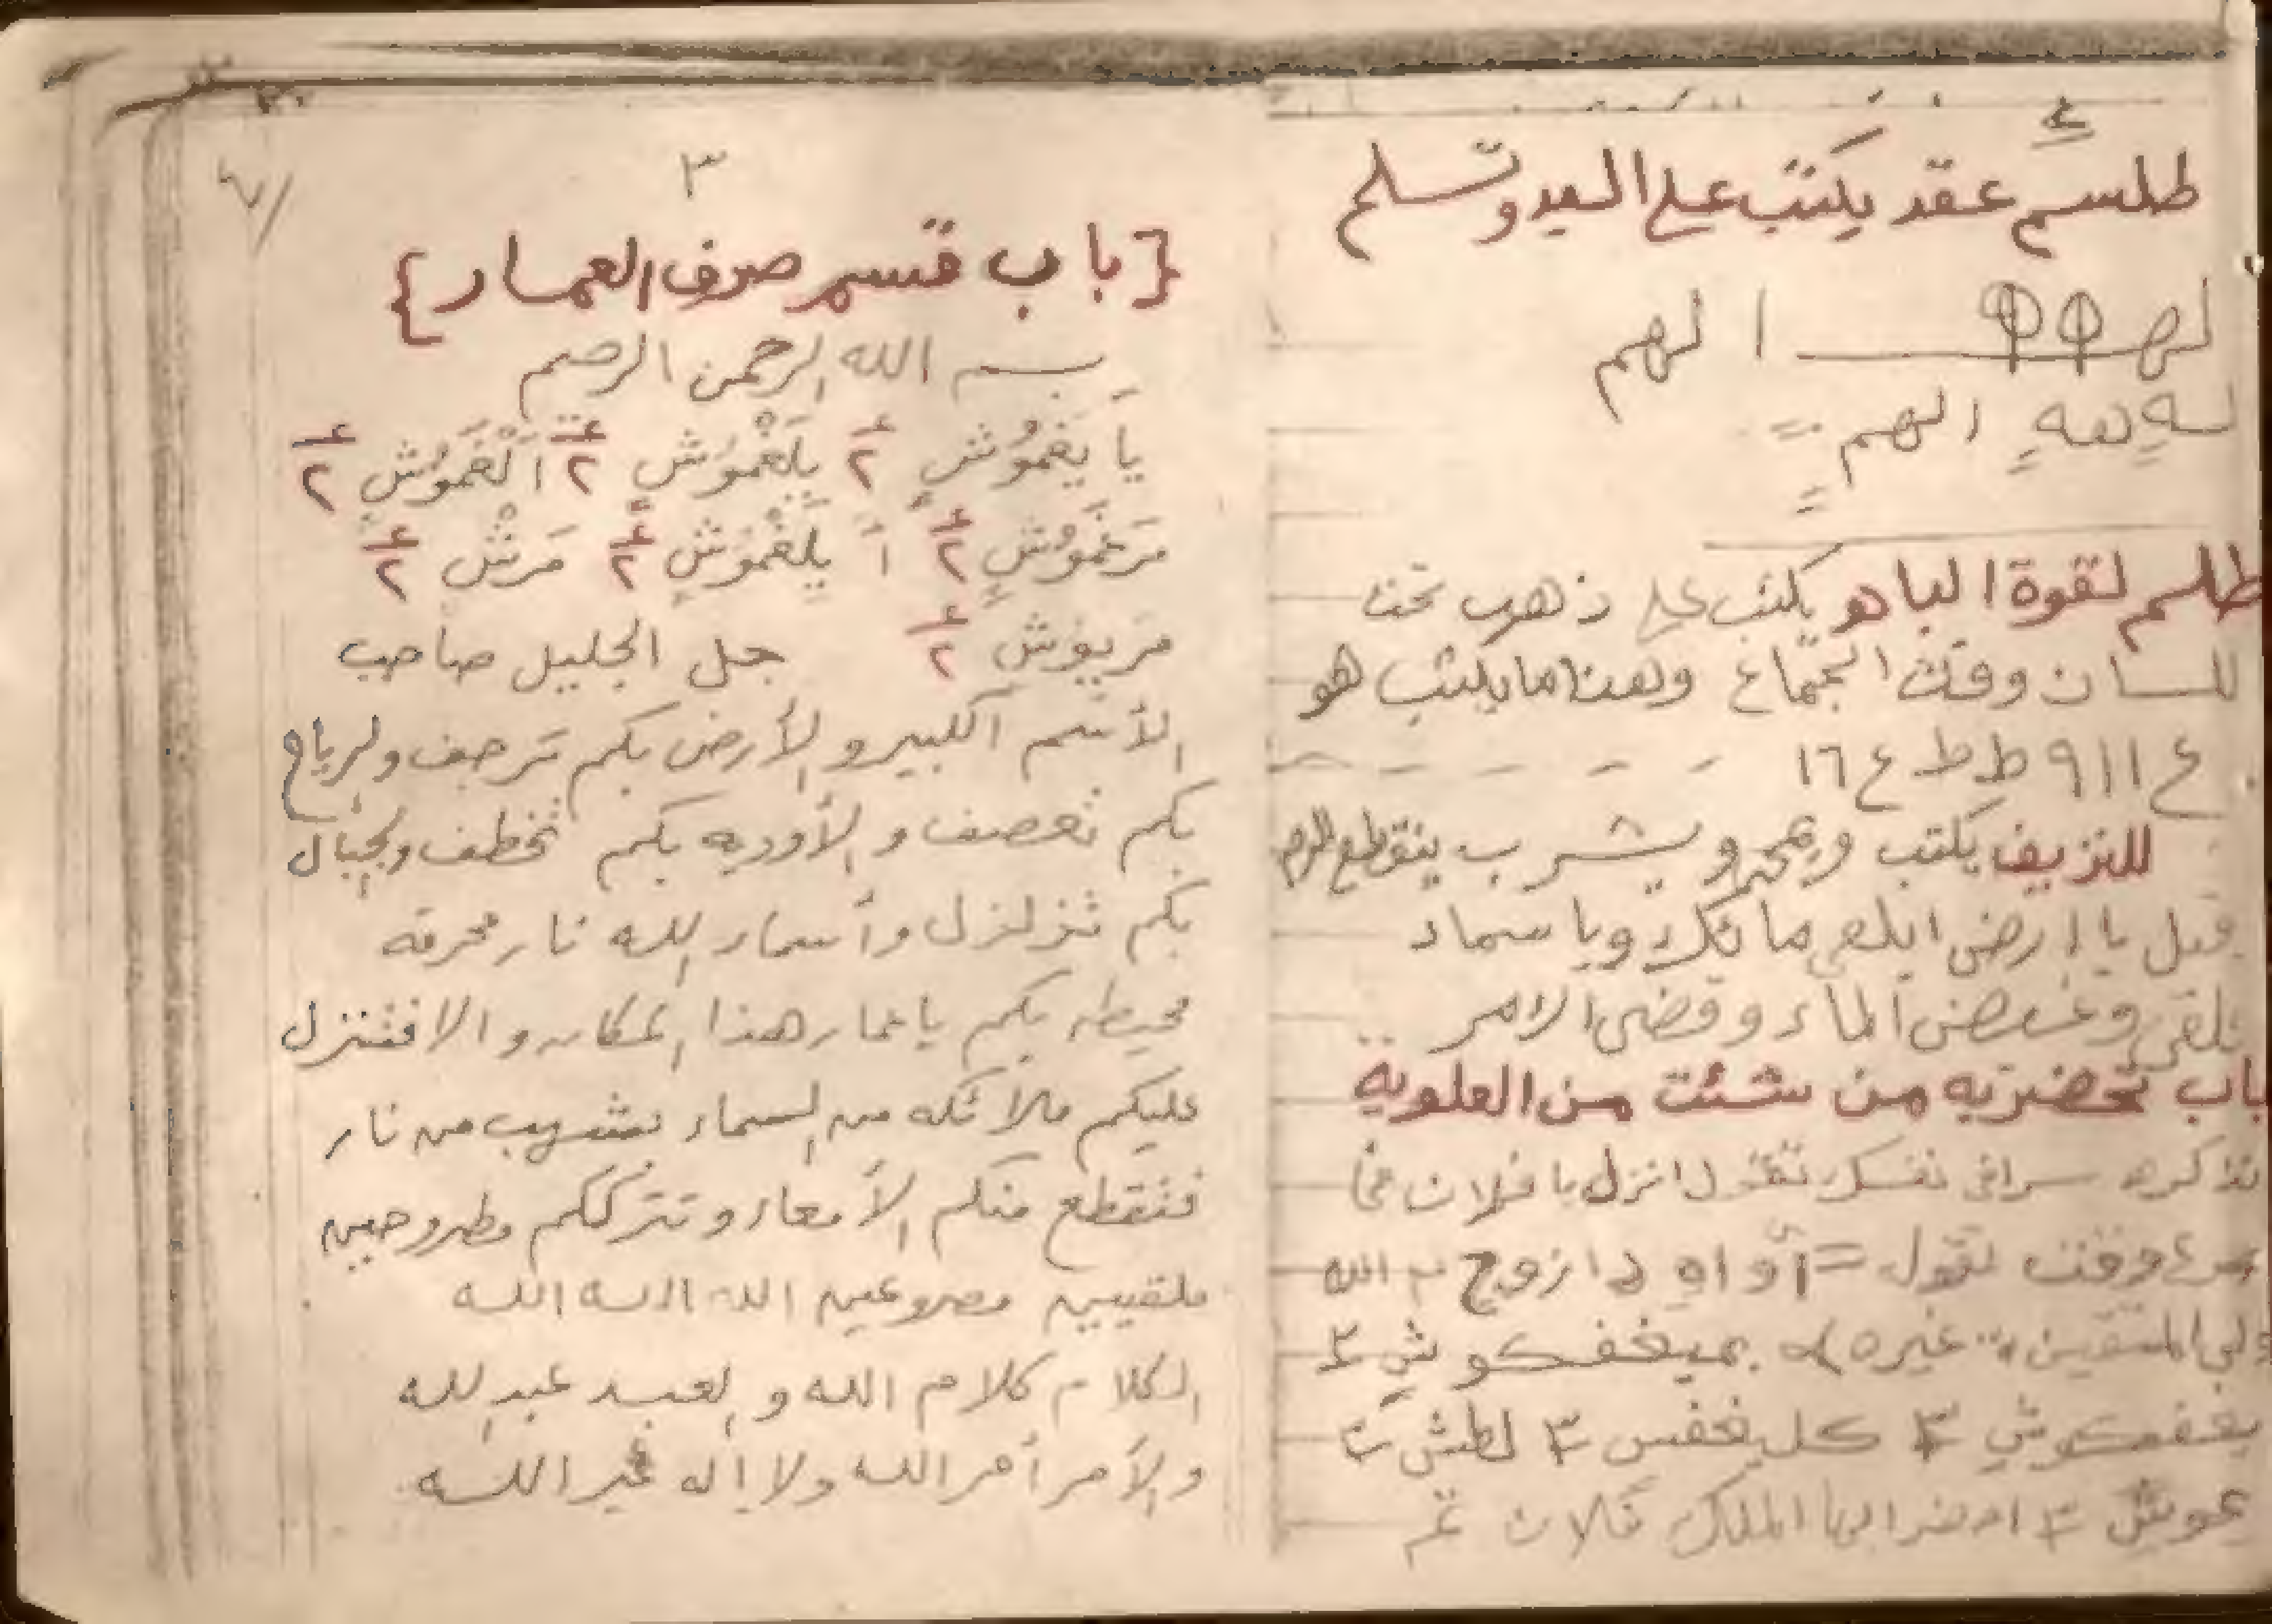 ٤
طلسم عقد يكتب على اليد وتسلم
ا لهم
ا لهم
طلسم لقوة الباهو يكتب على ذهب تحت
للسان وقت الجماع وهذا ما يكتب هو
ع ٩١١ ط ط ع ١٦
للنزيف يكتب ويمحى ويشرب ينقطع الدم
قيل يا ارض ابلعي مائك ويا سماء
وغيض الماء وقضي الامر
باب تحضر به من شئت من العلوية
سرا في نفسك تقول انزل يا فلان
وقت تقول = الله
ولي المتقين غيره
بميغفكوش ٣
٣ ٣ لطش
٣ احضر ايها الملك فلان
٦/
٣
{باب قسم صرف العمار}
بسم الله الرحمن الرحيم
يَا يَغْمُوُشٍ ٢ يَلَغْمُوُشٍ ٢ اَلْغَمُوُشٍ ٢
مَرَغَمُوُشٍ ٢ اَ يَلَغْمُوُشٍ ٢ مَرَشْ ٢
مريوش ٢ جل الجليل صاحب
الأسم الكبير والأرض بكم ترجف والرياح
بكم تعصف والأوديه بكم تخطف والجبال
بكم تزلزل وأسماء الله نار محرقه
محيطه بكم يا عمار هذا المكان والا فتنزل
عليكم ملائكه من السماء بشهب من نار
فتقطع منكم الأمعاء وتترككم مطروحين
ملقيين مصروعين الله الله الله
الكلام كلام الله والعبد عبد الله
والأمر أمر الله ولا إله غير الله